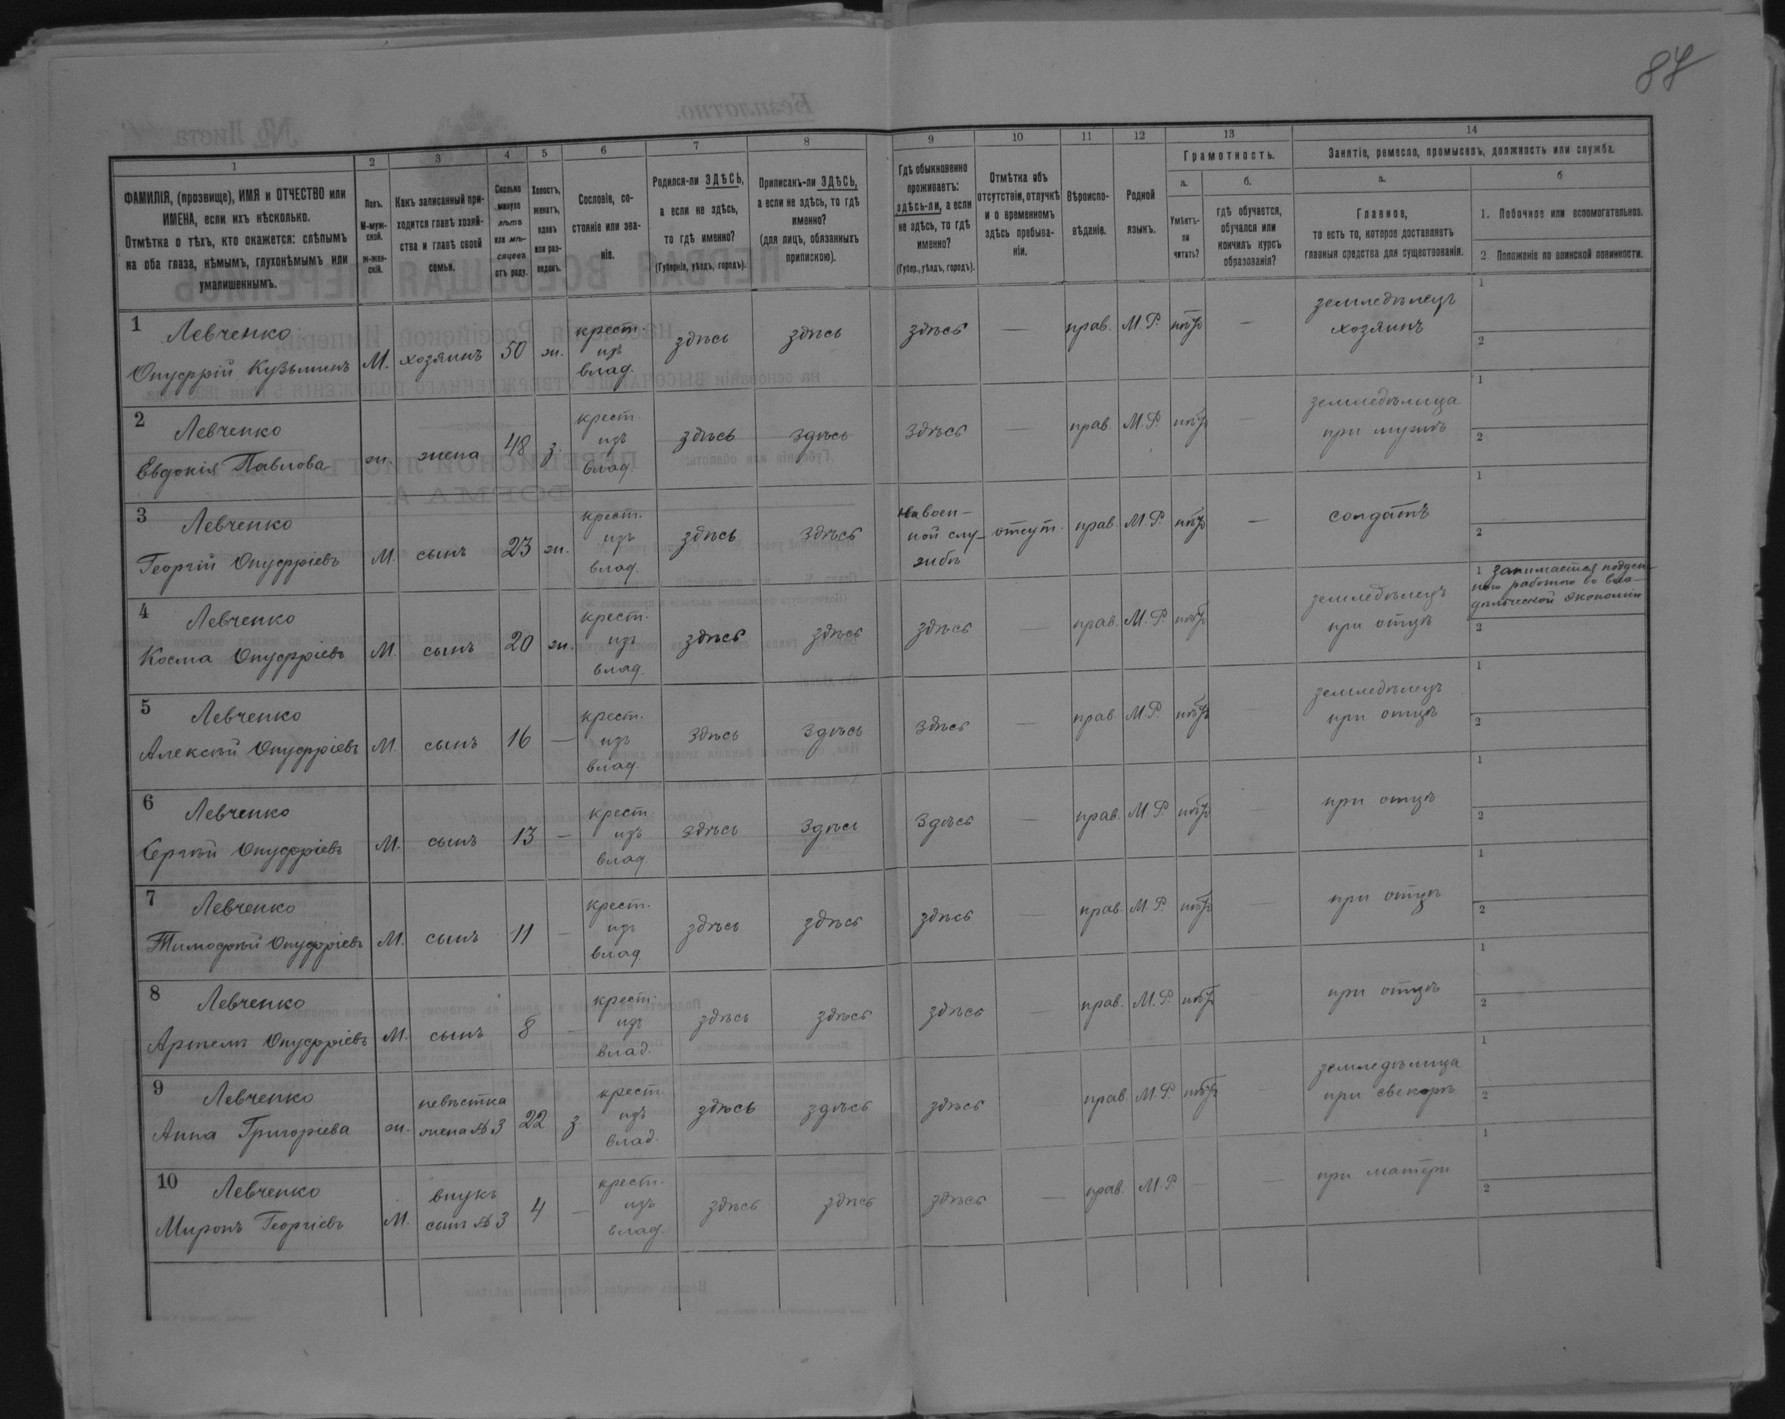 87
Безплатно.
№ Листа
1 2 3 4 5 6 7 8 9 10 11 12 13 14
ФАМИЛІЯ, (прозвище), ИМЯ и ОТЧЕСТВО или ИМЕНА, если ихъ нѣсколько.
Отмѣтка о тѣхъ, кто окажется: слѣпымъ на оба глаза, нѣмымъ, глухонѣмымъ или умалишеннымъ.
Полъ. М-мужской. ж-женскій.
Какъ записанный приходится главѣ хозяйства и главѣ своей семьи.
Сколько минуло лѣтъ или мѣсяцевъ отъ роду.
Холостъ, женатъ, вдовъ или разведенъ.
Сословіе, состояніе или званіе.
Родился-ли ЗДѢСЬ, а если не здѣсь, то гдѣ именно? (Губернія, уѣздъ, городъ).
Приписанъ-ли ЗДѢСЬ, а если не здѣсь, то гдѣ именно? (для лицъ, обязанныхъ припискою).
Гдѣ обыкновенно проживаетъ: здѣсь-ли, а если не здѣсь, то гдѣ именно? (Губер., уѣздъ, городъ).
Отмѣтка объ отсутствіи, отлучкѣ и о временномъ здѣсь пребываніи.
Вѣроисповѣданіе.
Родной языкъ.
Грамотность.
а. Умѣетъ-ли читать?
б. гдѣ обучается, обучался или кончилъ курсъ образованія?
Занятіе, ремесло, промыселъ, должность или служба.
а. Главное, то есть то, которое доставляетъ главныя средства для существованія.
б 1. Побочное или вспомогательное.
2 Положеніе по воинской повинности.
1 Левченко Онуфрій Кузьминъ М. хозяинъ 50 ж. крест. изъ влад. здѣсь здѣсь здѣсь — прав. М. Р. нѣтъ — земледѣлецъ хозяинъ 1 2
2 Левченко Евдокія Павлова ж. жена 48 з. крест. изъ влад. здѣсь здѣсь здѣсь — прав. М. Р. нѣтъ — земледѣлица при мужѣ 1 2
3 Левченко Георгій Онуфріевъ М. сынъ 23 ж. крест. изъ влад. здѣсь здѣсь на воен-ной слу-жбѣ отсут. прав. М. Р. нѣтъ — солдатъ 1 2
4 Левченко Косма Онуфріевъ М. сынъ 20 ж. крест. изъ влад. здѣсь здѣсь здѣсь — прав. М. Р. нѣтъ — земледѣлецъ при отцѣ 1 занимается поден-ною работою во вла-дѣльческой экономіи 2
5 Левченко Алексѣй Онуфріевъ М. сынъ 16 — крест. изъ влад. здѣсь здѣсь здѣсь — прав. М. Р. нѣтъ — земледѣлецъ при отцѣ 1 2
6 Левченко Сергѣй Онуфріевъ М. сынъ 13 — крест. изъ влад. здѣсь здѣсь здѣсь — прав. М. Р. нѣтъ — при отцѣ 1 2
7 Левченко Тимофѣй Онуфріевъ М. сынъ 11 — крест. изъ влад. здѣсь здѣсь здѣсь — прав. М. Р. нѣтъ — при отцѣ 1 2
8 Левченко Артемъ Онуфріевъ М. сынъ 8 — крест. изъ влад. здѣсь здѣсь здѣсь — прав. М. Р. нѣтъ при отцѣ 1 2
9 Левченко Анна Григоріева ж. невѣстка жена № 3 22 з. крест. изъ влад. здѣсь здѣсь здѣсь — прав. М. Р. нѣтъ — земледѣлица при свекорѣ 1 2
10 Левченко Миронъ Георгіевъ М. внукъ сынъ № 3 4 — крест. изъ влад. здѣсь здѣсь здѣсь — прав. М. Р. — — при матери 1 2